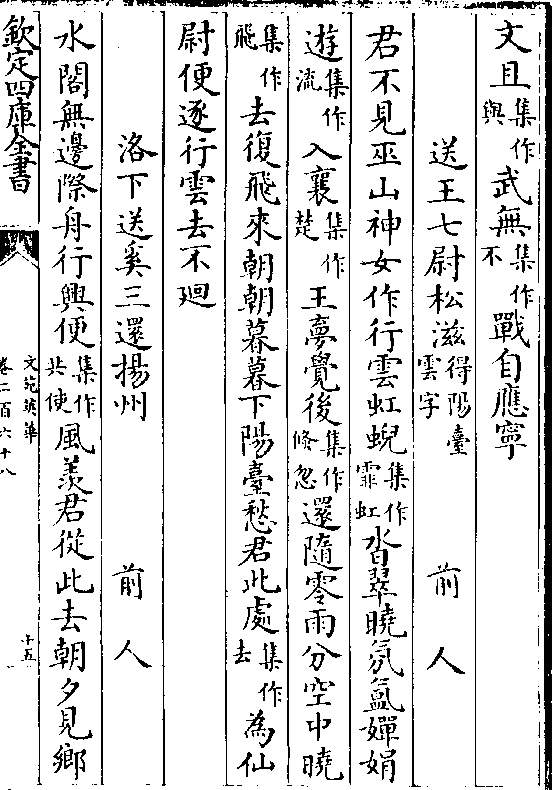 文且集作與武無集作不戰自應寧
送王七尉松滋得陽臺雲字 前人
君不見巫山神女作行雲虹蜺集作霏虹沓翠曉氛氳嬋娟
遊集作流入襄集作楚王夢覺後集作倐忽還隨零雨分空中曉
飛集作去復飛來朝朝暮暮下陽臺愁君此處集作去為仙
尉便逐行雲去不廻
洛下送奚三還揚州 前人
水闊無邊際舟行興便集作共使風羨君從此去朝夕見鄉
欽定四庫全書
文苑英華
卷二百六十八
十五